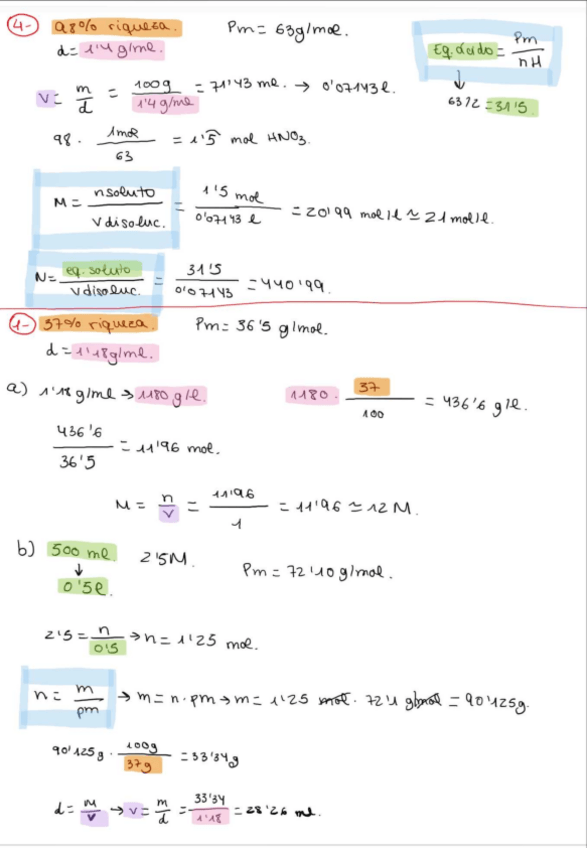 4- 98% riqueza. Pm = 63g/mol.
d = 1'4 g/ml.
Eq. ácido = Pm / nH
↓
63/2 = 31'5
V = m/d = 100g / 1'4 g/ml = 71'43 ml. → 0'07143 l.
98 · 1mol / 63 = 1'5 mol HNO₃.
M = n soluto / V disoluc. = 1'5 mol / 0'07143 l = 20'99 mol/l ≃ 21 mol/l.
N = eq. soluto / V disoluc. = 31'5 / 0'07143 = 440'99.
1- 37% riqueza. Pm = 36'5 g/mol.
d = 1'18g/ml.
a) 1'18 g/ml → 1180 g/l. 1180 · 37 / 100 = 436'6 g/l.
436'6 / 36'5 = 11'96 mol.
M = n/V = 11'96 / 1 = 11'96 ≃ 12 M.
b) 500 ml 2'5M. Pm = 72'10 g/mol.
↓
0'5l.
2'5 = n / 0'5 → n = 1'25 mol.
n = m / pm → m = n · pm → m = 1'25 mol · 72'1 g/mol = 90'125g.
90'125g · 100g / 37g = 33'34g
d = M/V → V = m/d = 33'34 / 1'18 = 28'26 ml.